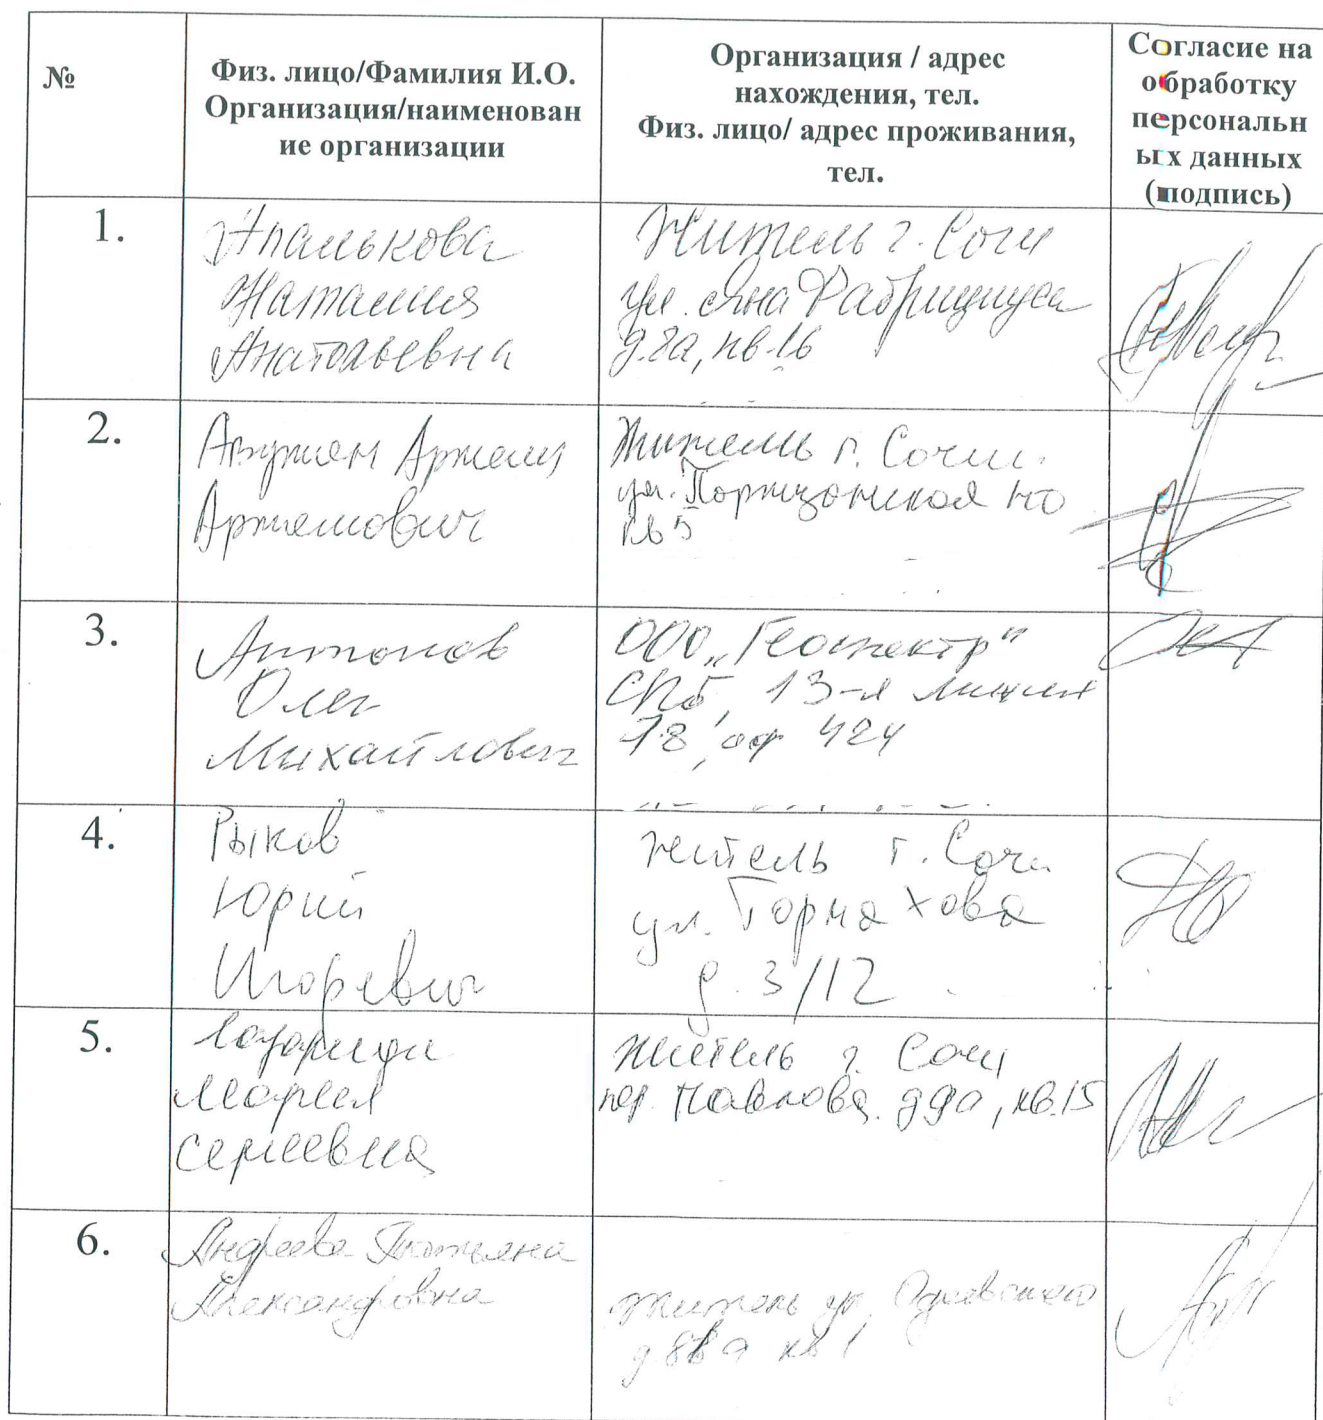 №
Физ. лицо/Фамилия И.О.
Организация/наименован
ие организации
Организация / адрес
нахождения, тел.
Физ. лицо/ адрес проживания,
тел.
Согласие на
обработку
персональн
ых данных
(подпись)
1.
Апалькова
Наталия
Анатольевна
Житель г. Сочи
ул. Яна Фабрициуса
д.8а, кв.16
2.
Артём
Артёмович
Житель г. Сочи
ул.
кв 5
3.
Антонов
Олег
Михайлович
ООО „Геоспектр"
СПб, 13-я линия
78, оф 424
4.
Рыков
Юрий
Игоревич
житель г. Сочи
ул.
д. 3/12
5.
Лазариди
Мария
Сергеевна
житель г. Сочи
пер. Павлова. д9а, кв.15
6.
Андреева Татьяна
Александровна
житель ул.
кв 1